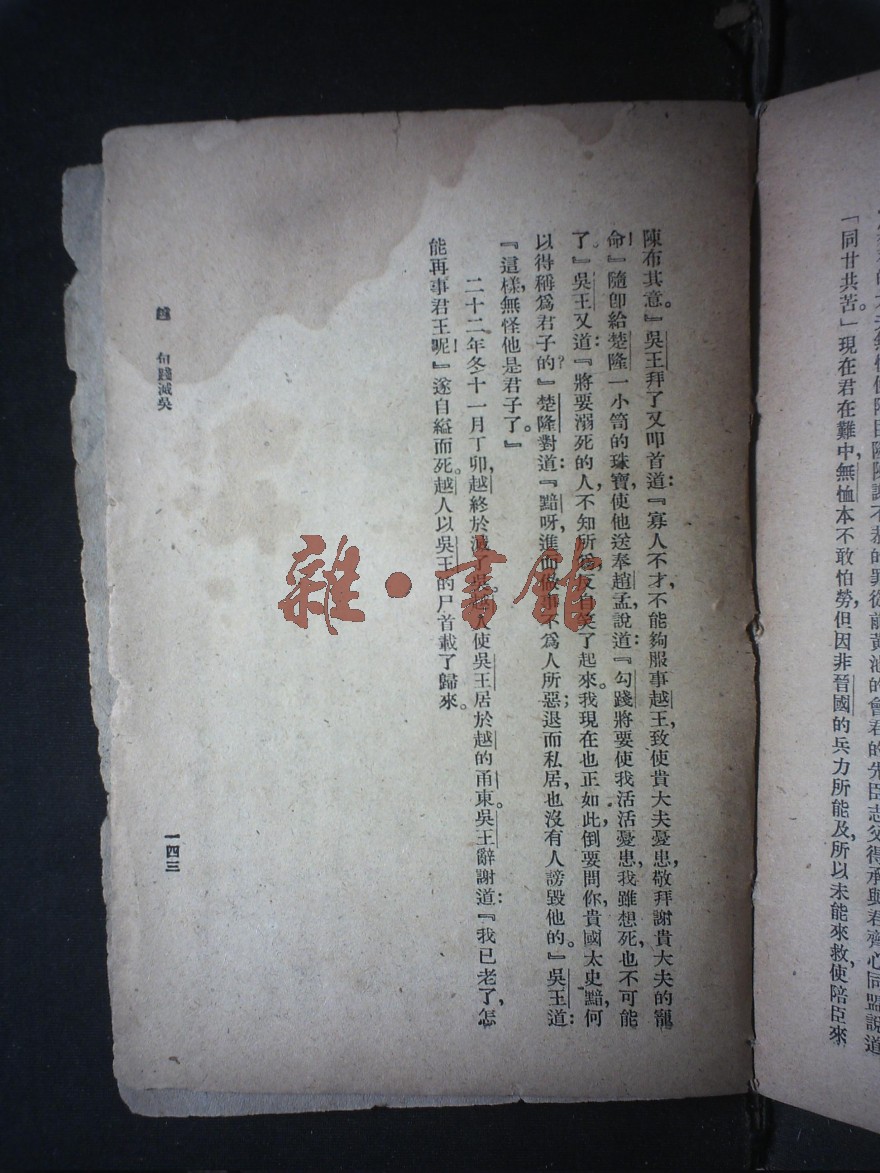 「同甘共苦。」現在君在難中，無恤本不敢怕勞，但因非晉國的兵力所能及，所以未能來救，使陪臣來
陳布其意。』吳王拜了又叩首道：『寡人不才，不能夠服事越王，致使貴大夫憂患，敬拜謝貴大夫的寵
命！』隨卽給楚隆一小笥的珠寶，使他送奉趙孟，說道：『勾踐將要使我活活憂患，我雖想死，也不可能
了。』吳王又道：『將要溺死的人，不知所為，反自笑了起來。我現在也正如此，倒要問你，貴國太史黯，何
以得稱爲君子的？』楚隆對道：『黯呀，進而做事不爲人所惡；退而私居，也沒有人謗毀他的。』吳王道：
『這樣，無怪他是君子了。』
二十二年冬十一月丁卯，越終於滅了吳。越人使吳王居於越的甬東。吳王辭謝道：『我已老了，怎
能再事君王呢！』遂自縊而死。越人以吳王的尸首載了歸來。
越 句踐滅吳
一四三
雜·書館